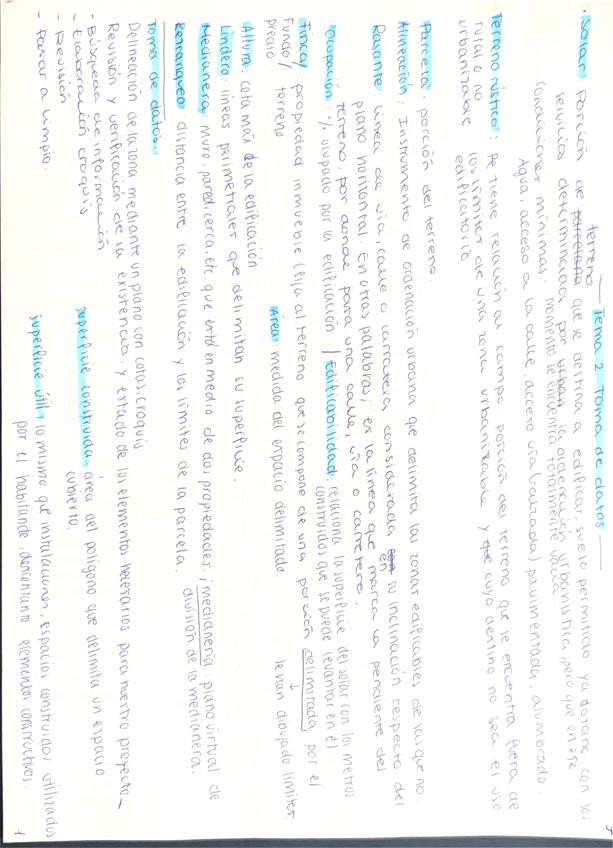 Tema 2 Toma de datos
· Solar: Porción de terreno que se destina a edificar, suelo permitido ya dotado con los
servicios determinados por la ordenación urbanística, pero que en ese
momento se encuentra totalmente vacía.
Condiciones mínimas:
Agua, acceso a la calle, acceso vía calzada, pavimentada, alumbrado.
Terreno rústico: Se tiene relación al campo, porción del terreno que se encuentra fuera de
rural o no los límites de una zona urbanizable y cuyo destino no sea el uso
urbanizable edificatorio
Parcela: porción del terreno.
Alineación: Instrumento de ordenación urbana que delimita las zonas edificables de las que no.
Rasante: línea de vía, calle o carretera considerada en su inclinación respecto del
plano horizontal. En otras palabras, es la línea que marca la pendiente del
terreno, por donde pasa una calle, vía o carretera.
Ocupación: % ocupado por la edificación / Edificabilidad: relaciona la superficie del solar con los metros
construidos que se puede levantar en él.
Finca/ propiedad inmueble fija al terreno que se compone de una porción delimitada por el
Fundo/ terreno
predio
↓
le van dibujado límites.
Altura: cota más de la edificación
Área: medida del espacio delimitado.
Lindero: líneas perimetrales que delimitan su superficie.
Medianera: muro, pared, cerca, etc. que está en medio de dos propiedades; medianería: plano virtual de
división de la medianera.
Retranqueo: distancia entre la edificación y los límites de la parcela.
Toma de datos.
Delineación de la zona mediante un plano con cotas, croquis
Revisión y verificación de la existencia y estado de los elementos necesarios para nuestro proyecto
- Búsqueda de información
- Elaboración croquis
- Revisión
- Pasar a limpio.
Superficie construida: área del polígono que delimita un espacio
cubierto.
Superficie útil: lo mismo que instalaciones, espacios construidos utilizados
por el habitante, descontanto elementos constructivos.
1